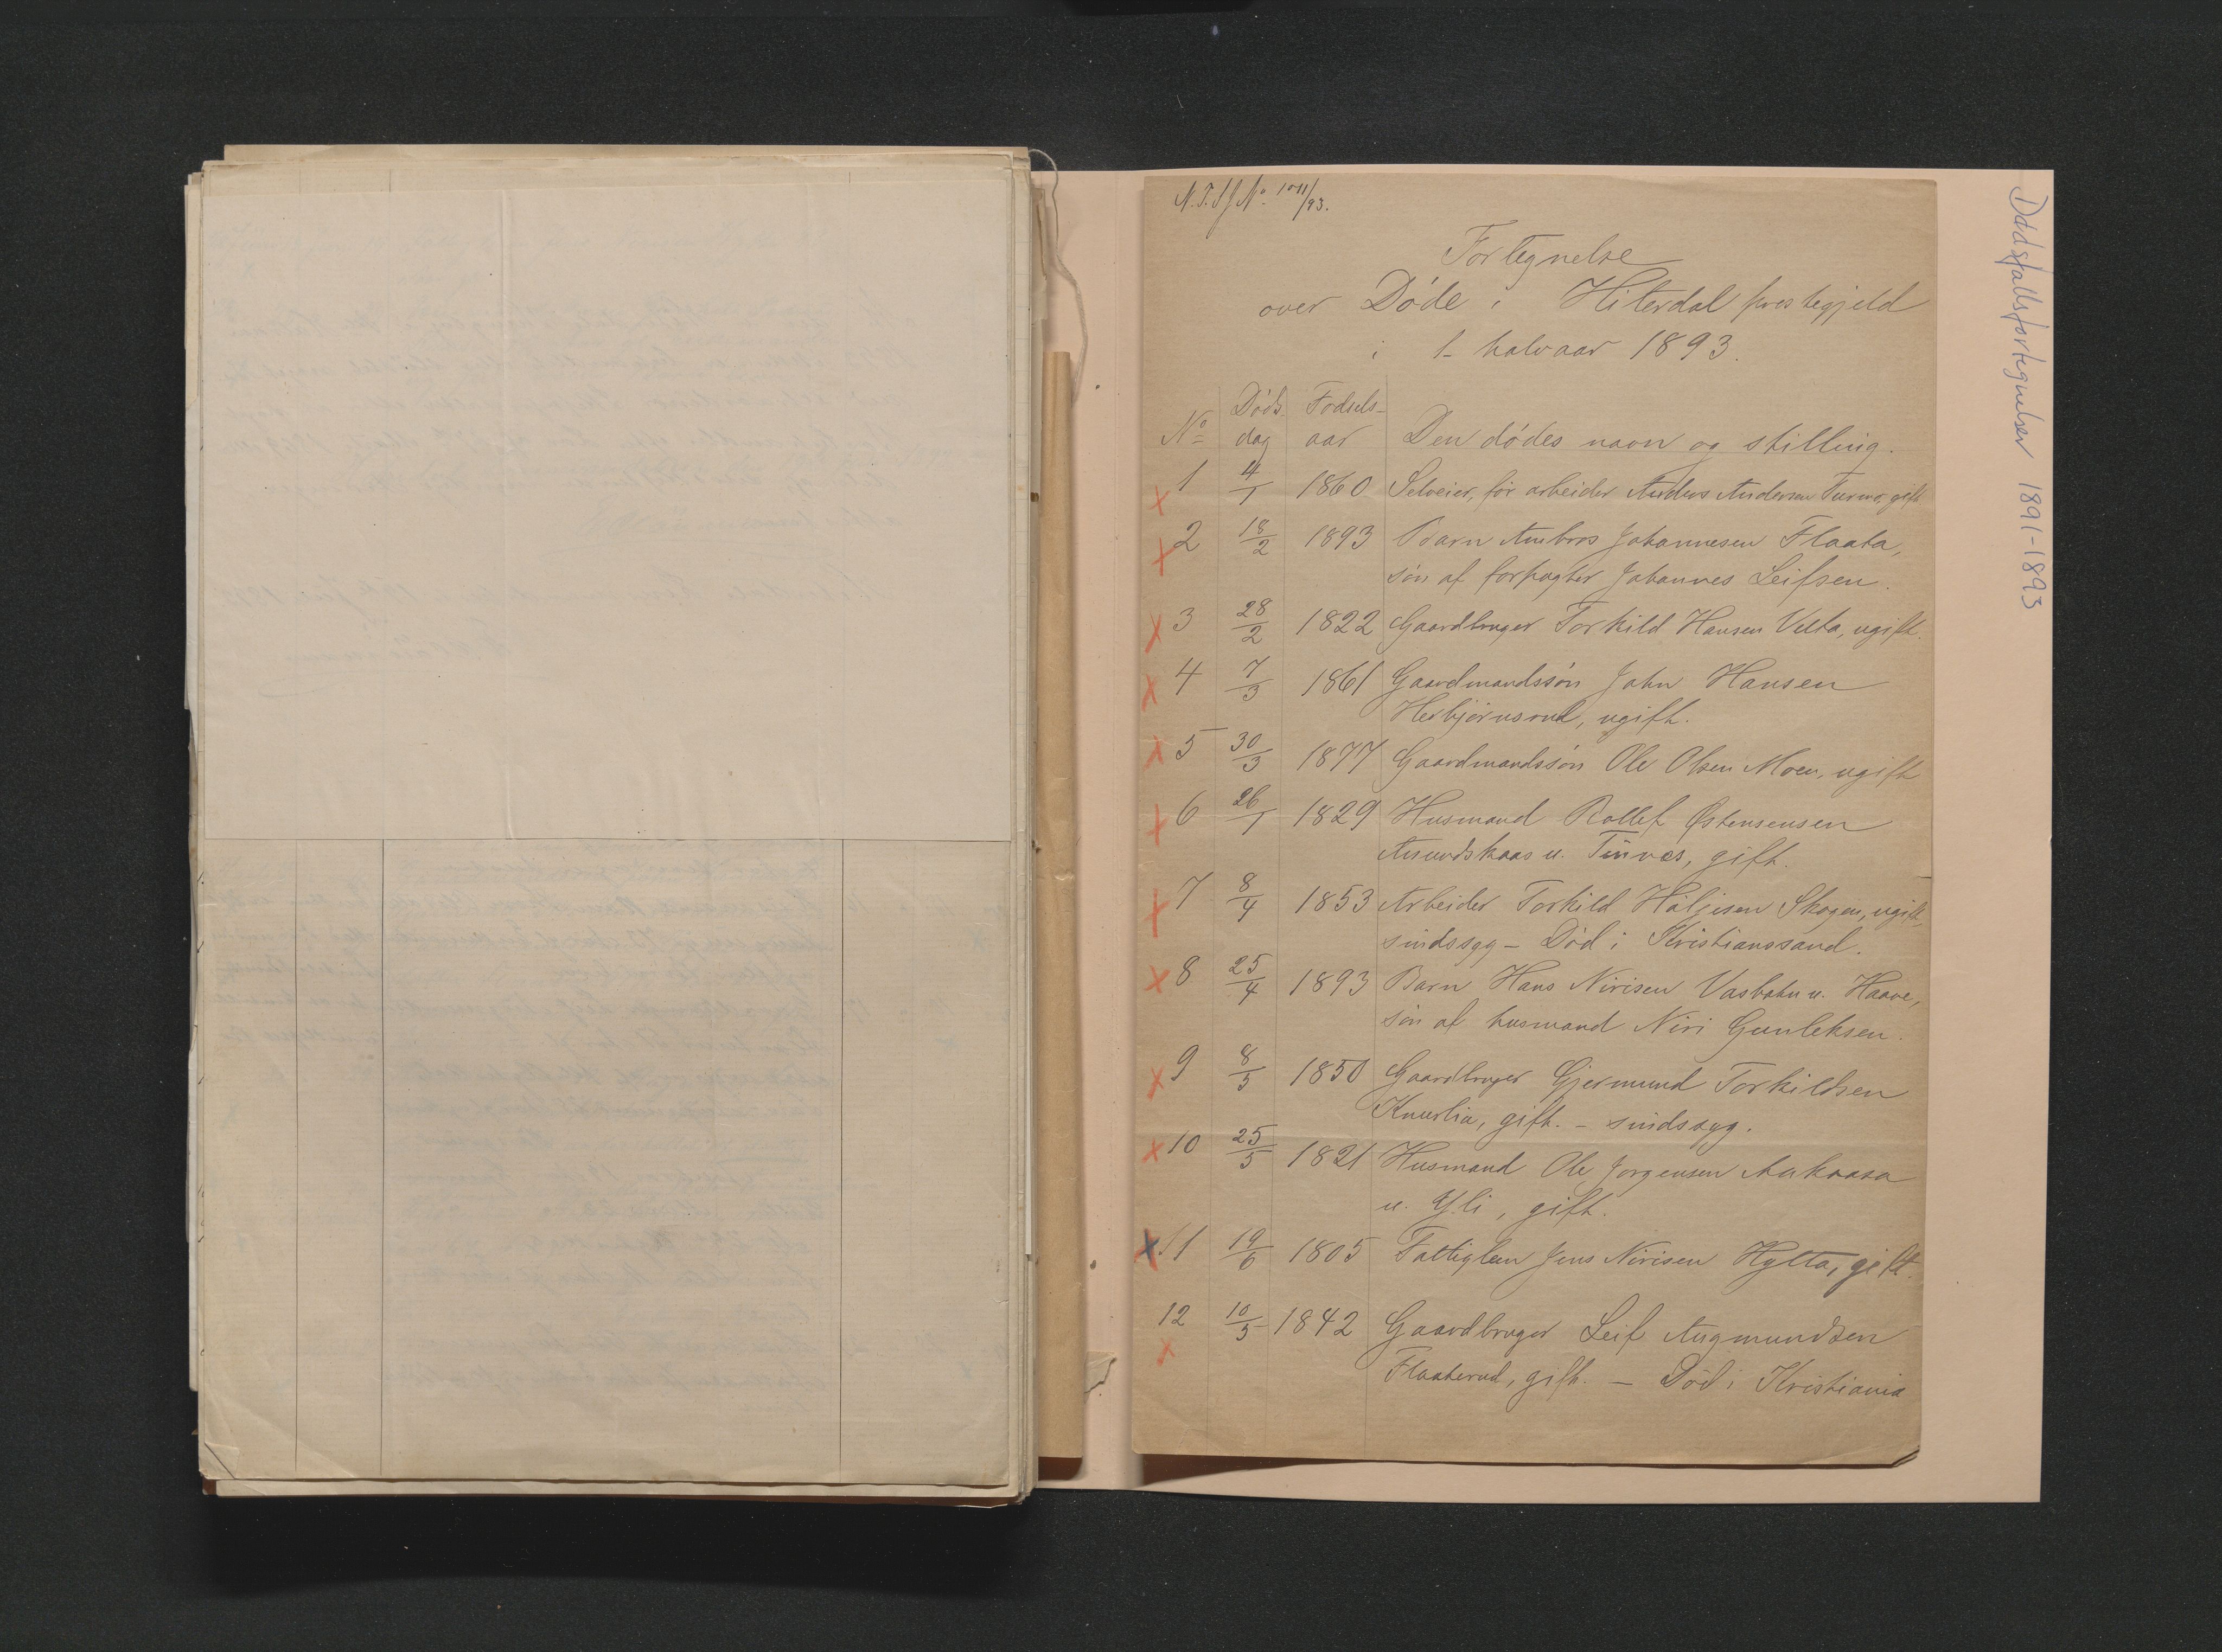 N.T.Sf No. 1011/93.
Fortegnelse
over Døde i Hiterdal prestegjeld
i 1. halvaar 1893.
No Døds- dag Fødsels- aar Den dødes navn og stilling.
1 4/1 1860 Selveier, før arbeider Anders Andersen Turmo, gift
2 18/2 1893 Barn Ambros Johannesen Flaata,
søn af forpagter Johannes Leifsen.
3 28/2 1822 Gaardbruger Torkild Hansen Velta, ugift.
4 7/3 1861 Gaardmandssøn John Hansen
Herbjørnsrud, ugift.
5 30/3 1877 Gaardmandssøn Ole Olsen Moen, ugift
6 26/1 1829 Husmand Rollef Østensensen
Amundskaas u. Tinnes, gift.
7 8/4 1853 Arbeider Torkild Hølgesen Skogen, ugift,
sindssyg – Død i Kristianssand.
8 25/4 1893 Barn Hans Nirisen Vasbotn u. Haave,
søn af husmand Niri Gunleksen.
9 8/5 1850 Gaardbruger Gjermund Torkildsen
Knurlia, gift. – sindssyg.
10 25/5 1821 Husmand Ole Jorgensen Aakaasa
u. Yli, gift.
11 19/6 1805 Fattiglem Jens Nirisen Hytta, gift.
12 10/5 1842 Gaardbruger Leif Augmundsen
Flaaterud, gift. – Død i Kristiania
Dødsfallsfortegnelser 1891-1893